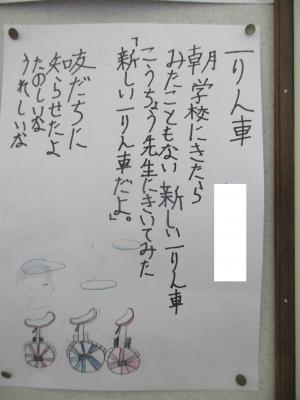 一りん車
朝学校にきたら
みたこともない新しい一りん車
こうちょう先生にきいてみた
「新しい一りん車だよ。」
友だちに
知らせたよ
たのしいな
うれしいな